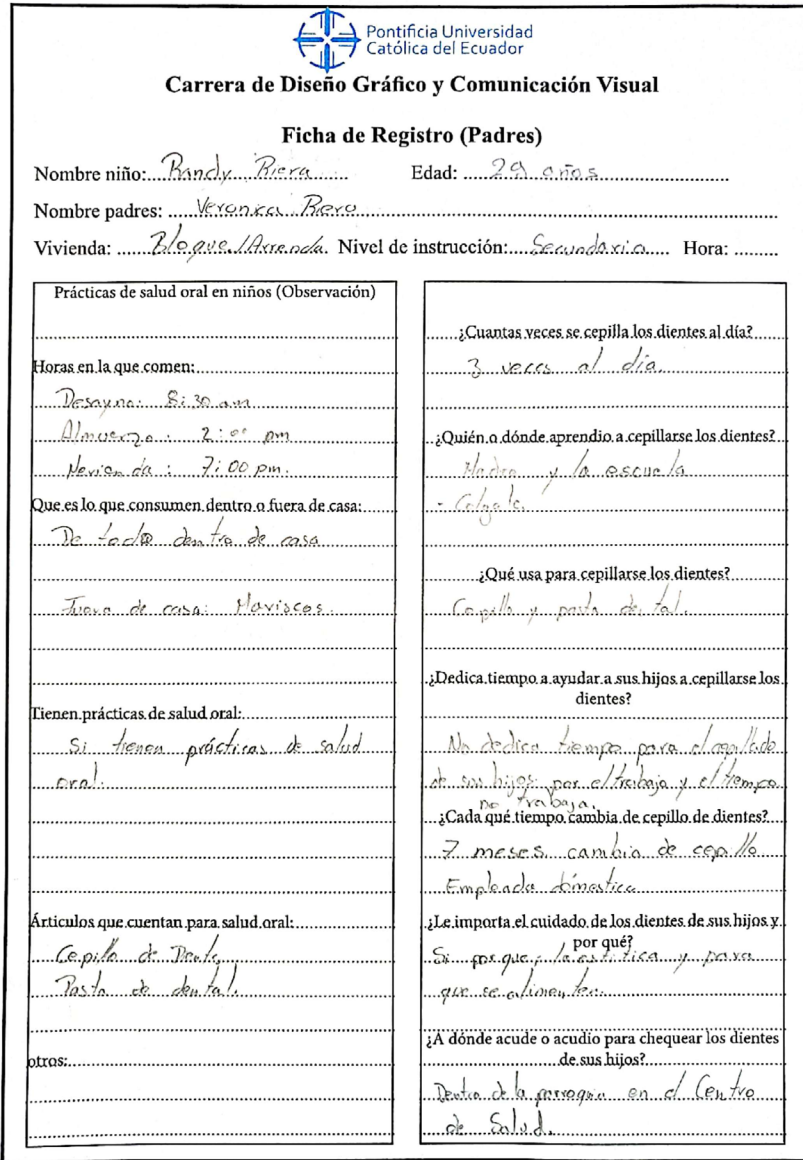 Pontificia Universidad
Católica del Ecuador
Carrera de Diseño Gráfico y Comunicación Visual
Ficha de Registro (Padres)
Nombre niño: Randy Riera Edad: 29 años
Nombre padres: Veronica Riera
Vivienda: Bloque / Arrenda. Nivel de instrucción: Secundaria Hora:
Prácticas de salud oral en niños (Observación)
Horas en la que comen:
Desayno: 8:30 am
Almuerzo: 2:00 pm
Merienda: 7:00 pm.
Que es lo que consumen dentro o fuera de casa:
De todo dentro de casa
Fuera de casa: Mariscos.
Tienen prácticas de salud oral:
Si tienen prácticas de salud
oral.
Árticulos que cuentan para salud oral:
Cepillo de Dente
Pasta de dental.
otros:
¿Cuantas veces se cepilla los dientes al día?
3 veces al día.
¿Quién o dónde aprendio a cepillarse los dientes?
Madre y la escuela
- Colgate.
¿Qué usa para cepillarse los dientes?
Cepillo y pasta dental.
¿Dedica tiempo a ayudar a sus hijos a cepillarse los
dientes?
No dedica tiempo para el cepillado
de sus hijos por el trabajo y el tiempo
no trabaja.
¿Cada qué tiempo cambia de cepillo de dientes?
7 meses cambia de cepillo
Empleada domestica
¿Le importa el cuidado de los dientes de sus hijos y
por qué?
Si porque la estitica y para
que se alimenten.
¿A dónde acude o acudio para chequear los dientes
de sus hijos?
Dentro de la parroquia en el Centro
de Salud.